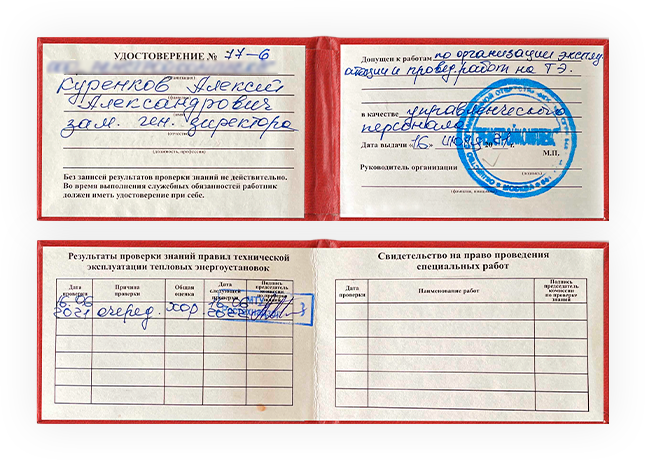 УДОСТОВЕРЕНИЕ № 77-6
Куренков Алексей
Александрович
зам. ген. директора
(должность, профессия)
Без записей результатов проверки знаний не действительно.
Во время выполнения служебных обязанностей работник
должен иметь удостоверение при себе.
Допущен к работам по организации эксплу
атации и провед. работ на ТЭ.
в качестве управленческого
персонала
Дата выдачи «16» июня
М.П.
Руководитель организации
(подпись)
Результаты проверки знаний правил технической
эксплуатации тепловых энергоустановок
Дата проверки
Причина проверки
Общая оценка
Дата следующей проверки
Подпись председателя комиссии
16.06 2021
очеред.
хор
16.06 2022
Свидетельство на право проведения
специальных работ
Дата проверки
Наименование работ
Подпись председателя комиссии по проверке знаний